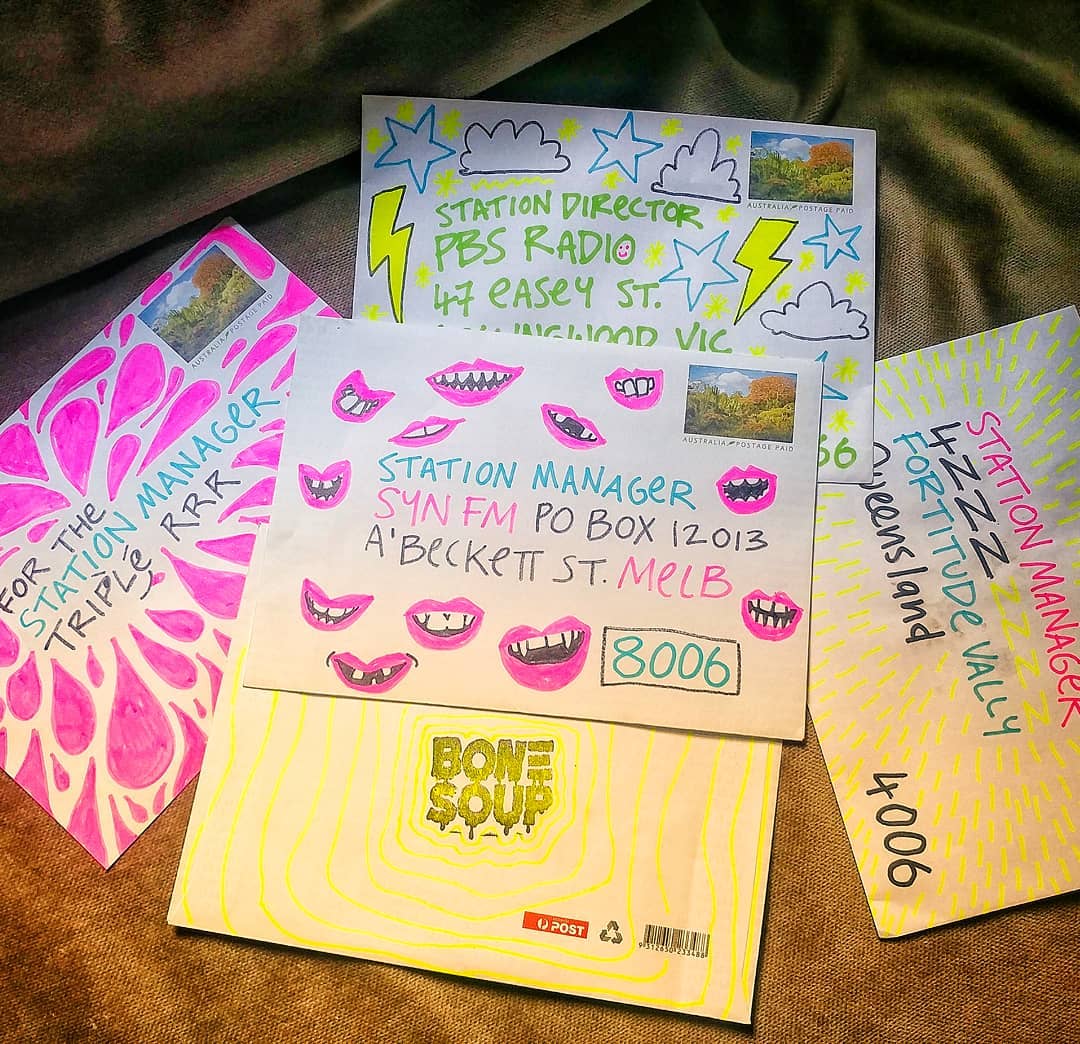 AUSTRALIA POSTAGE PAID
STATION DIRECTOR
PBS RADIO
47 EASEY ST.
COLLINGWOOD VIC
66
AUSTRALIA POSTAGE PAID
FOR THE
STATION MANAGER
TRIPLé RRR
AUSTRALIA POSTAGE PAID
STATION MANAGER
SYN FM PO BOX 12013
A'BECKETT ST. MELB
8006
STATION MANAGER
4ZZZ ZZZZ
FORTITUDE VALLY
Queensland
4006
BONE
SOUP
POST
9 312650 233488